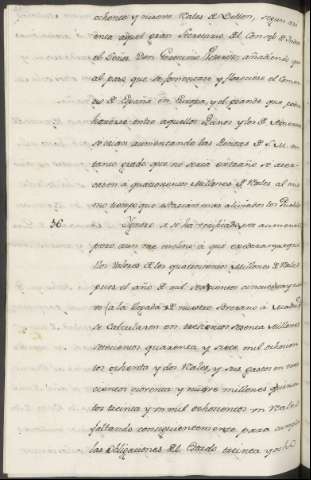 ochenta y nueve Reales de Vellon, segun
aquel gran Secretario del Consejo de
el Señor Don Geronimo añadiendo que
al paso que se fomentase y floreciese el Comer
cio de España en Europa, y el grande que podria
haverse entre aquellos Reinos y los de America
se irian aumentando las Rentas de S. M. en
tanto grado que no seria extraño se acer
casen a quatrocientos Millones de Reales al mis
mo tiempo que estarian mas aliviados los Pueblos
56. se ha verificado este aumento
pero aun me inclino a que excederan
los Valores de los quatrocientos Millones de Reales
pues el año de mil setecientos cinquenta y
te (a la llegada de nuestro Soberano a Madrid)
se calcularon en trescientos sesenta Millones
setecientos quarenta, y siete mil ochocien
tos ochenta y dos Reales, y sus gastos en tres
cientos noventa y nueve millones quinien
tos treinta y un mil ochocientos Reales
faltando consiguientemente para cumplir
las obligaciones del Estado treinta y ocho